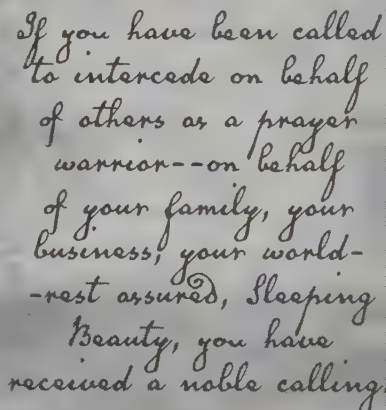 If you have been called
to intercede on behalf
of others as a prayer
warrior--on behalf
of your family, your
business, your world-
-rest assured, Sleeping
Beauty, you have
received a noble calling.